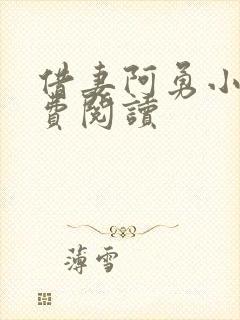 借妻阿勇小
費閱讀
薄雪